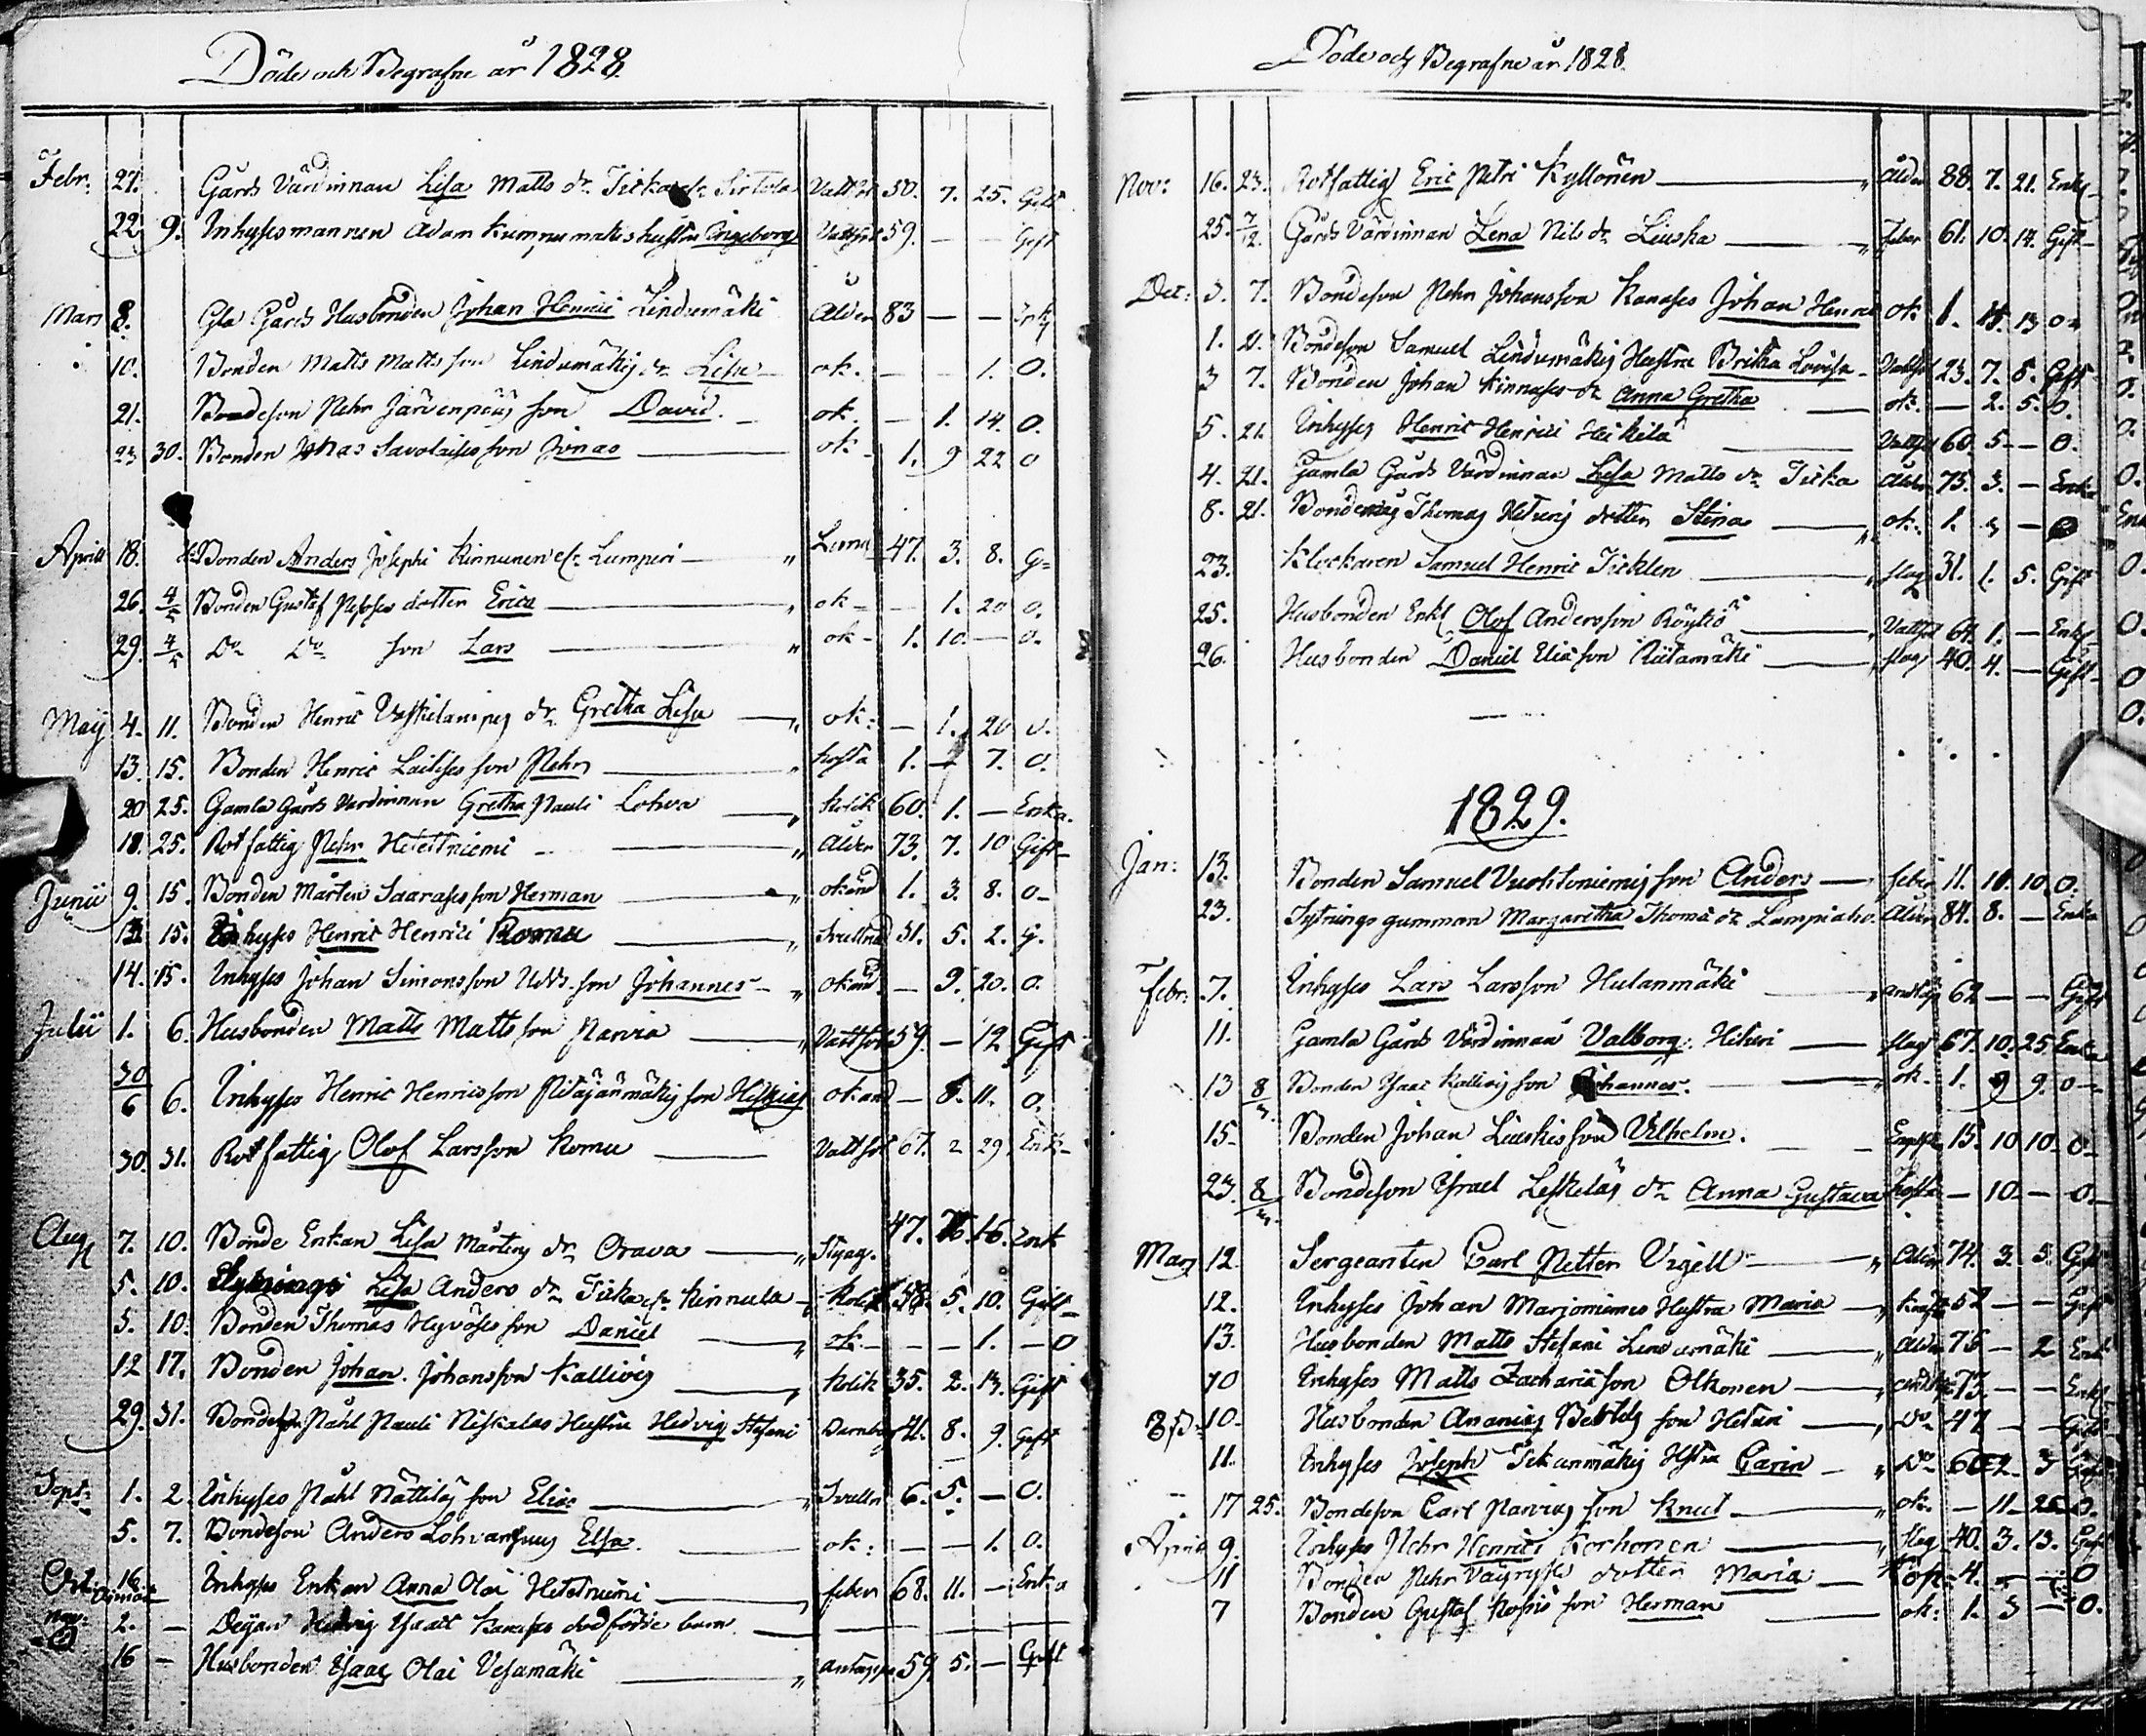 Döde och Begrafne år 1828.
Febr: 27. Gårds Värdinnan Lisa Matts dr Ticka Sirtola 50. 7. 25. Gift
22 9. Inhyses mannen Adam Kumpumäkis hustru Ingeborg Vattsot 59. — — Gift
Mars 8. Gla Gårds Husbonden Johan Henrici Lindumäki Ålder 83 — —
10. Bonden Matts Mattsson Lindumäkis dr Lisa — ok. — — 1. O.
21. Bondeson Pehr Järvenpääs son David. — ok. — 1. 14. O.
23 30. Bonden Jonas Savolaises son Jonas — ok. 1. 9 22 O
Aprill 18. Bonden Anders Josephi Kinnunen el. Lumperi — 47. 3. 8. G-
26. 4/5 Bonden Gustaf dotter Erica — ok — — 1. 20 O.
29. 4/5 Do Do son Lars — ok — 1. 10. — O.
Maij 4. 11. Bonden Henric dr Gretha Lisa — ok: — 1. 20 O.
13. 15. Bonden Henric Laitises son Pehr — hosta 1. — 7. O.
20 25. Gamla Gårds Värdinnan Gretha Pauli Lohva — Kolik 60. 1. — Enka.
18. 25. Rotfattig Pehr Heteitniemi — Ålder 73. 7. 10 Gift
Junii 9. 15. Bonden Mårten Saarases son Herman — okänd 1. 3. 8. O-
13. 15. Inhyses Henric Henrici Komu — Svullnad 31. 5. 2. G.
14. 15. Inhyses Johan Simonsson son Johannes — okänd — 9. 20. O.
Julii 1. 6. Husbonden Matts Mattsson Parvia — Vattsot 59. — 12 Gift
30/6 6. Inhyses Henric Henricsson Pitäjänmäkis son Hiskias okänd — 8. 11. O.
30. 31. Rotfattig Olof Larsson Komu — Vattsot 67. 2 29. Enk-
Aug 7. 10. Bonde Enkan Lisa Mårtens dr Orava — 47. 16. Enk
5. 10. Sytnings Lisa Anders dr Ticka el. Kinnula — Kolik 58. 5. 10. Gift
5. 10. Bonden Thomas Hyvöses son Daniel — ok — — — 1. — O
12 17. Bonden Johan Johansson Kallio — Kolik 35. 2. 13. Gift
29. 31. Påhl Pauli Niskalas Hustru Hedvig Stefani Barnbörd 41. 8. 9. Gift
Sept: 1. 2 Inhyses Påhl Nättiläs son Elias — Svulln 6. 5. — O.
5. 7. Bondeson Anders Elsa. — ok: — — 1. O.
Oct. 16. Inhyses Enkan Anna Olai Heteitniemi — feber 68. 11. — Enka
Nov: 2. — Pigan Hedvig Isaacs dr dödfödde barn —
16 — Husbonden Isaac Olai Vesamäki — 59. 5. — Gift
Döde och Begrafne år 1828.
Nov: 16. 23. Rotfattig Eric Petri Kyllönen — Ålder 88. 7. 21. Enkl
25. 7/12. Gårds Värdinnan Lena Nils dr Liuska — Feber 61. 10. 14. Gift
Dec: 3. 7. Bondeson Pehr Johansson Kanases Johan Henric ok 1. 11. 13 O-
1. 21. Bondeson Samuel Lindumäkis Hustru Britha Lovisa — Vattsot 23. 7. 5. Gift
3 7. Bonden Johan Kinnases dr Anna Gretha — ok. — 2. 5. O.
5. 21. Inhyses Henric Henrici Heikilä — Vattsot 60. 5 — O.
4. 21. Gamla Gårds Värdinnan Lisa Matts dr Ticka Ålder 75. 3. — Enka
8. 21. Thomas dotter Stina — ok. 1. 3 —
23. Klockaren Samuel Henric Ticklen — slag 31. 1. 5. Gift
25. Husbonden Enkl Olof Andersson Röytiö — Vattsot 64. 1. — Enkl
26. Husbonden Daniel Eliæson Riitamäki — slag 40. 4. — Gift
1829.
Jan: 13. Bonden Samuel Vuohtoniemis son Anders — feber 11. 11. 10. O.
23. Sytnings gumman Margaretha Thomæ dr Lampiaho. Ålder 84. 8. — Enka
Febr: 7. Inhyses Lars Larsson Hulanmäki 62 — — Gift
11. Gamla Gårds Värdinnan Valborg — slag 67. 10. 25 Enka
13 8/3. Bonden Isaac Kallios son Johannes. — ok. 1. 9 9. O-
15- Bonden Johan Liuskas son Vilhelm. — 15. 10 10. O-
23. 8/3. Bondeson Israel Leskeläs dr Anna Gustava hosta — 10 — O-
Mars 12. Sergeanten Carl Petter Vigell — Ålder 74. 3. 5. Gift
12. Inhyses Johan Marjoniemis Hustru Maria — 52 — — Gift
13. Husbonden Matts Stefani Lindumäki — Ålder 75 — 2 Enkl
10 Inhyses Matts Zachariæson Olkonen — 73. — — Enkl
10- Husbonden Ananias Bertils son Heturi — Do 47 — — Gift
11. Inhyses Joseph Hstru Carin — Do 60 2 3 Gift
17 25. Bondeson Carl Parvias son Knut — ok. — 11 — 25 O.
April 9. Inhyses Pehr Henrici Korhonen — slag 40. 3. 13. Gift
11 Bonden Pehr Väyryses dotter Maria — 4. — — O
7 Bonden Gustaf son Herman — ok: 1. 3 — O.